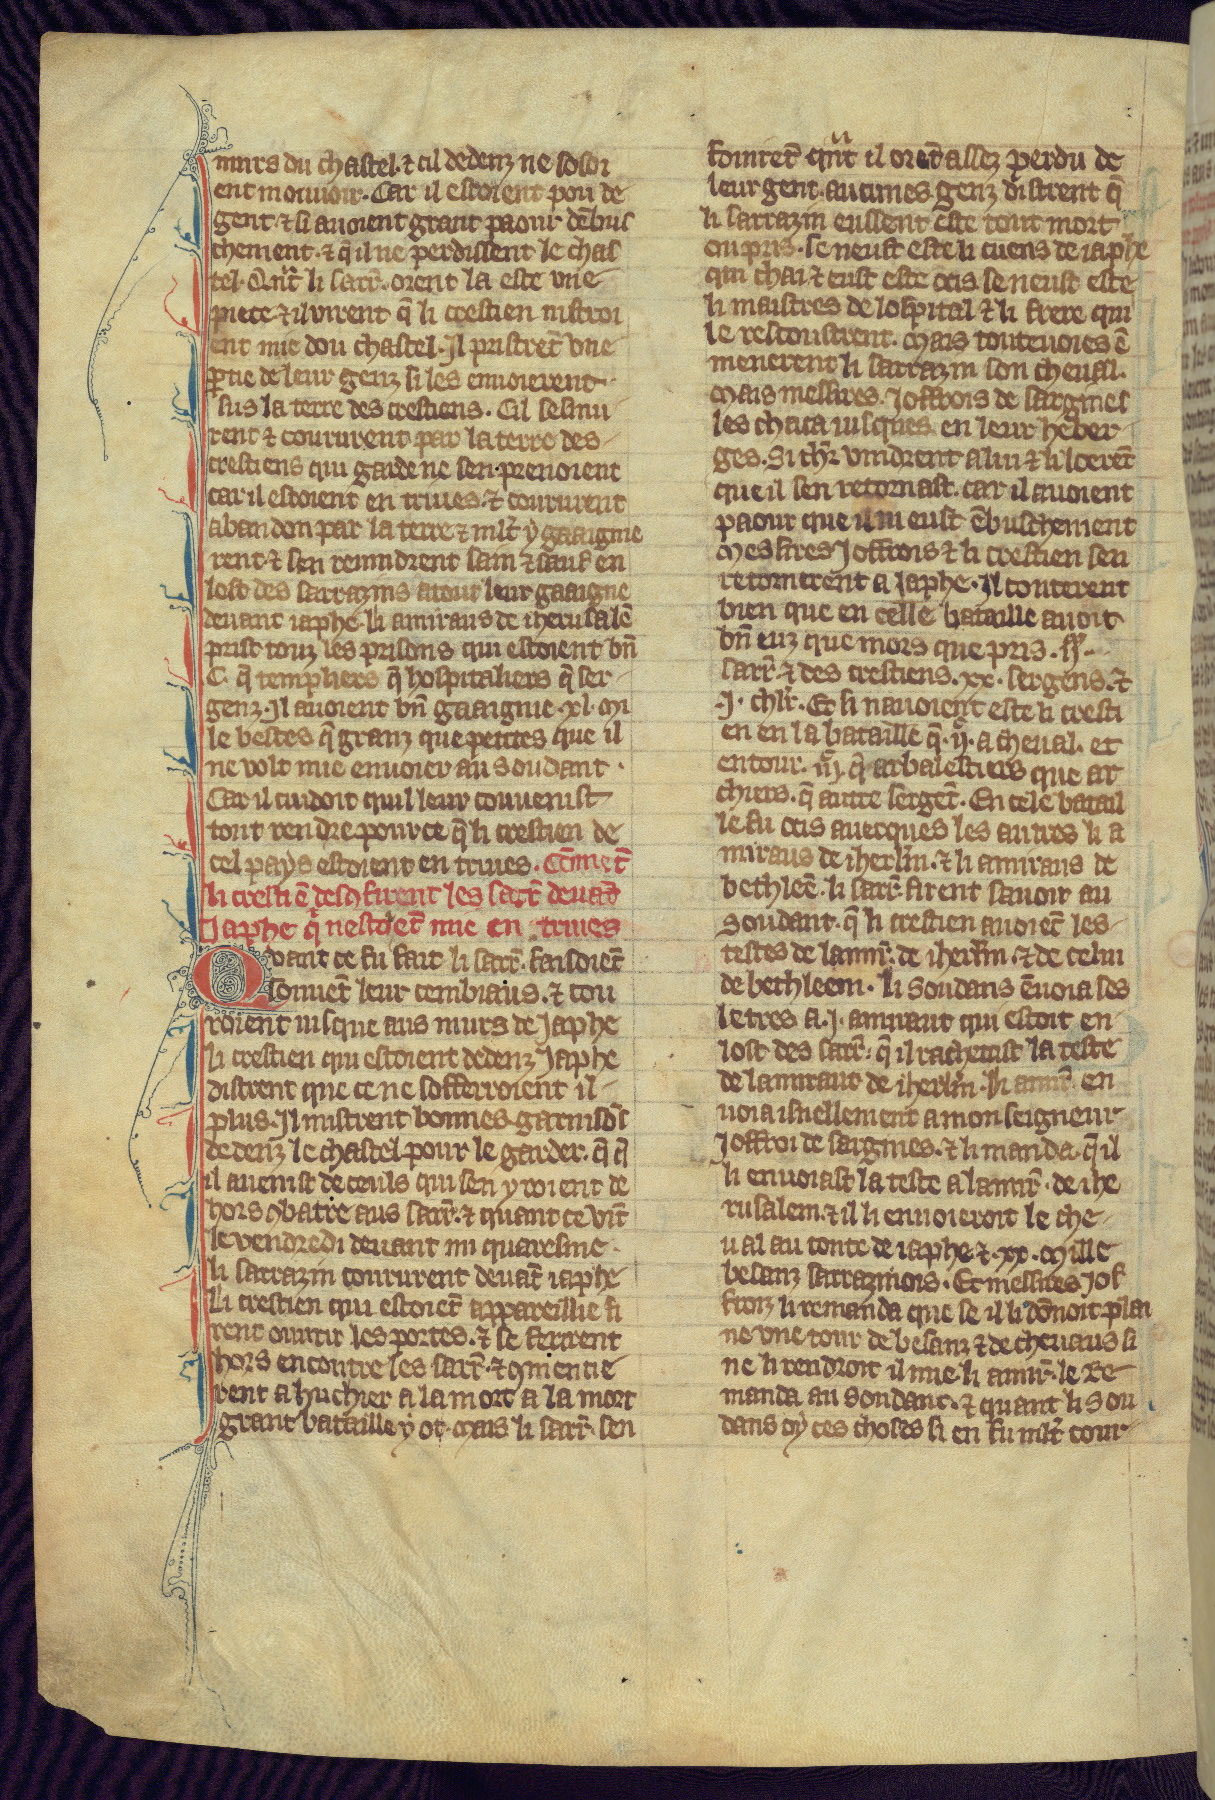 murs du chastel. ⁊ cil dedenz ne sosoi
ent mouuoir. Car il estoient pou de
gent. ⁊ si auoient grant paour dēbus
chement. ⁊ q̄ il ne perdissent le chas
tel. Qn̄t li sarr̄. orent la este vne
piece ⁊ il virent q̄ li crestien nistroi
ent mie dou chastel. Il pristrēt vne
ꝑtie de leur genz si les enuoierent
sus la terre des crestiens. Cil sesmu
rent ⁊ coururent par la terre des
crestiens qui garde ne sen prenoient
car il estoient en triues. ⁊ coururent
abandon par la terre ⁊ mlt̄ y gaaigne
rent. ⁊ sen reuindrent sain ⁊ sauf en
lost des sarrazins atout leur gaaigne
deuant iaphe. li amiraus de iherusalē
prist touz les prisons qui estoient bn̄
C. q̄ templiers q̄ hospitaliers q̄ ser
genz. Il auoient bn̄ gaaignie .xl. mi
le bestes q̄ granz que petites que il
ne volt mie enuoier au Soudant.
Car il cuidoit quil leur couuenist
tout rendre pour ce q̄ li crestien de
cel pays estoient en triues. Cōmēt
li crestiē desꝯfirent les sarr̄ deuāt
Iaphe q̄ nestoiēt mie en triues
Quant ce fu fait li sarr̄. faisoiēt
souuēt leur cembiaus. ⁊ cou
roient iusque aus murs de Iaphe
li crestien qui estoient dedenz Iaphe
distrent que ce ne sofferroient il
plus. Il mistrent bonnes garnisōs
dedenz le chastel pour le garder. q̄ q̄
il auenist de ceuls qui sen ystroient de
hors ꝯbatre aus sarr̄. ⁊ quant ce vīt
le vendredi deuant mi quaresme.
li sarrazin coururent deuāt iaphe
Li crestien qui estoiēt appareillie fi
rent ouurir les portes. ⁊ se ferirent
hors encontre les sarr̄. ⁊ ꝯmencie
rent a huchier a la mort a la mort
grant bataille y ot. Mais li sarr̄. sen
fouirēt qn̄t il orēt assez perdu de
leur gent. aucunes genz distrent q̄
li sarrazin eussent este tout mort
ou pris. se neust este li cuens de iaphe
qui chai ⁊ eust este ocis se neust este
li maistres de lospital ⁊ li frere qui
le rescoustrent. Mais toutenoies ē
menerent li sarrazin son cheual.
Mais messires Joffrois de sargines
les chaca iusques en leur heber
ges. Si chr̄ vindrent a lui ⁊ li loerēt
que il sen retornast. car il auoient
paour que il ni eust ēbuschement
Messires Joffrois ⁊ li crestien sen
retornerent a Iaphe. Il conterent
bien que en celle bataille auoit
bn̄ euz que mors que pris
sarr̄. ⁊ des crestiens .xx. sergens. ⁊
.J. chlr̄. Et si nauoient este li cresti
en en la bataille q̄ .ij.c a cheual. et
entour .iij.c q̄ arbalestiers que ar
chiers. q̄ autre sergēt. En cele batail
le fu ocis auecques les autres li a
miraus de iherlm̄. ⁊ li amiraus de
bethleē. li sarr̄. firent sauoir au
Soudant. q̄ li crestien auoiēt les
testes de lamir̄. de iherlm̄. ⁊ de celui
de bethleem. li Soudans ēuoia ses
letres a .J. amiraut qui estoit en
lost des sarr̄. q̄ il rachetast la teste
de lamiraut de iherlm̄. li amir̄. en
uoia isnellement a mon seigneur
Joffroi de sargines. ⁊ li manda q̄ il
li enuoiast la teste a lamir̄. de ihe
rusalem. ⁊ il li enuoieroit le che
ual au conte de iaphe ⁊ .xx. mille
besanz sarrazinois. Et messires Jof
froiz li remanda que se il li dōnoit plai
ne vne tour de besanz ⁊ de cheuaus si
ne li rendroit il mie. li amir̄. le re
manda au soudant. ⁊ quant li sou
dans oy ces choses si en fu mlt̄ cour